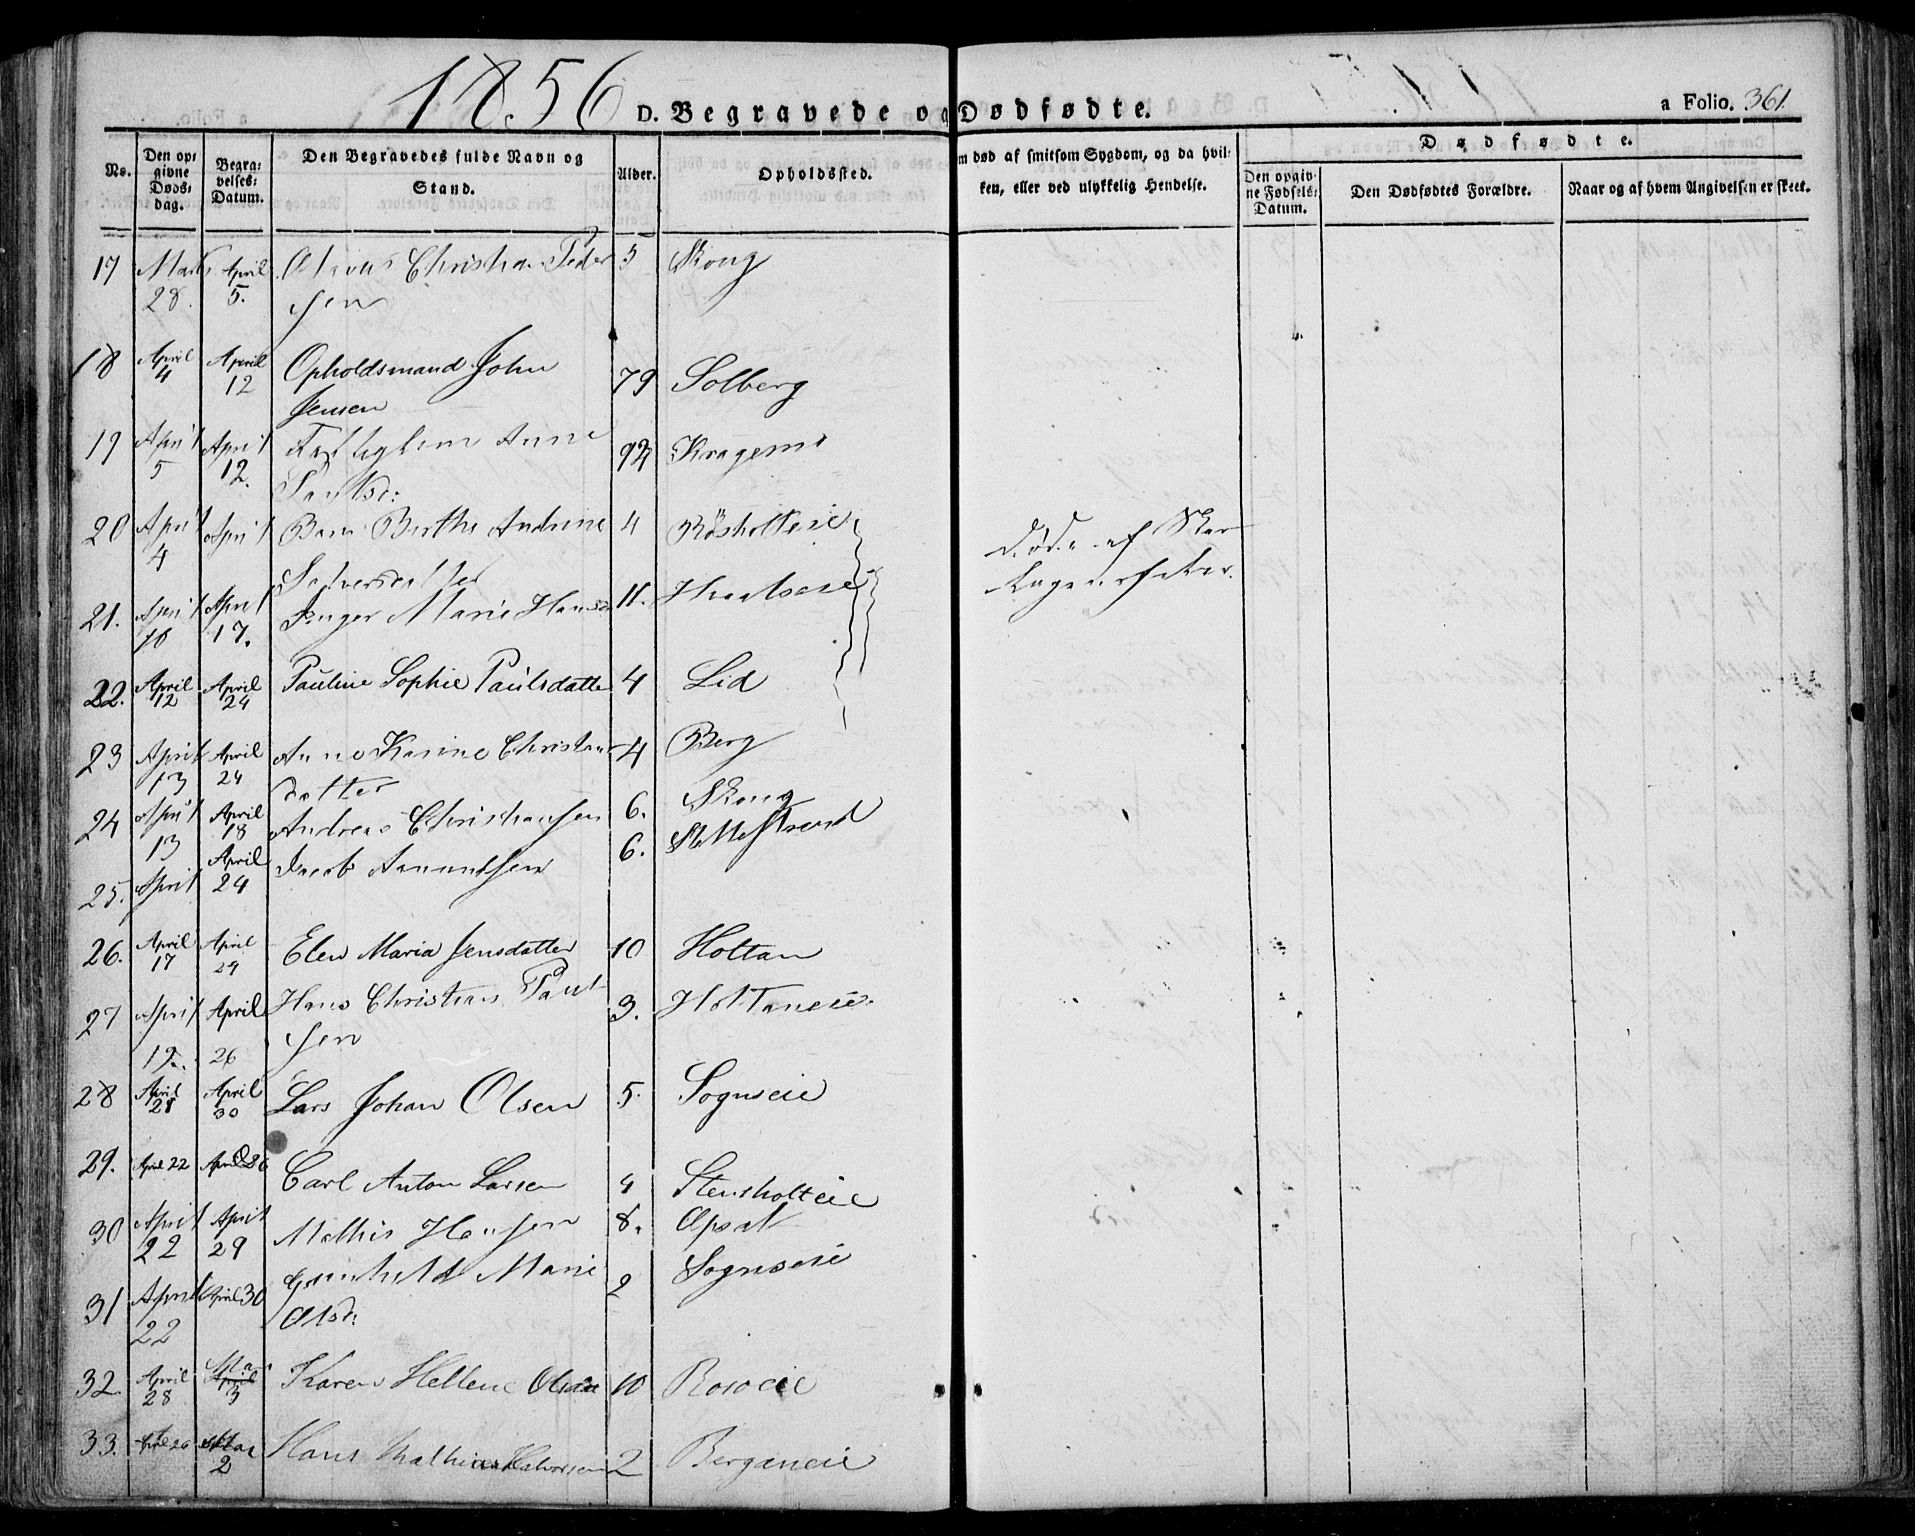 1856 D. Begravede og Dødfødte. a Folio. 361.
No. Den opgivne Dødsdag. Begravelses: Datum. Den Begravedes fulde Navn og Stand. Alder. Opholdssted. m død af smitsom Sygdom, og da hvilken, eller ved ulykkelig Hendelse. Dødfødte. Den opgivne Fødsels: Datum. Den Dødfødtes Forældre. Naar og af hvem Angivelsen er skeet.
17 Marts 28. April 5. Christian Peder 5 Skoug
sen
18 April 4 April 12 Opholdsmand John 79 Solberg
Jensen
19 April 5 April 12. Anne 92 Kragerø
Paulsd:
20 April 4 April Barn Berthe Andrine 4
døde af Skar-
lagensfeber.
21. April 10 April 17. Inger Marie Hansd 11.
22. April 12 April 24 Pauline Sophie Paulsdatter 4 Lid
23 April 13 April 24 Anne Karine Christians 4 Berg
datter
24 April 13 April 18 Andreas Christiansen 6. Skoug
25. April April 24 Jacob Amundsen 6.
26. April 17 April 24 Elen Maria Jensdatter 10 Holtan
27 April 19. April 26 Hans Christian Paul 3. Holtaneie
sen
28 April 21 April 30 Lars Johan Olsen 5. Sogneeie
29. April 22 April Carl Anton Larsen 4 Stensholteie
30 April 22 April 29 Mathis Hansen 8. Opsal
31 April 22 April 30 Gunhild Marie 2 Sogneeie
Olsd:
32. April 28 Mai 3 Karen Hellene Olsdat 10
33. Mai 2 Hans Mathias Halvorsen 2 Berganeie